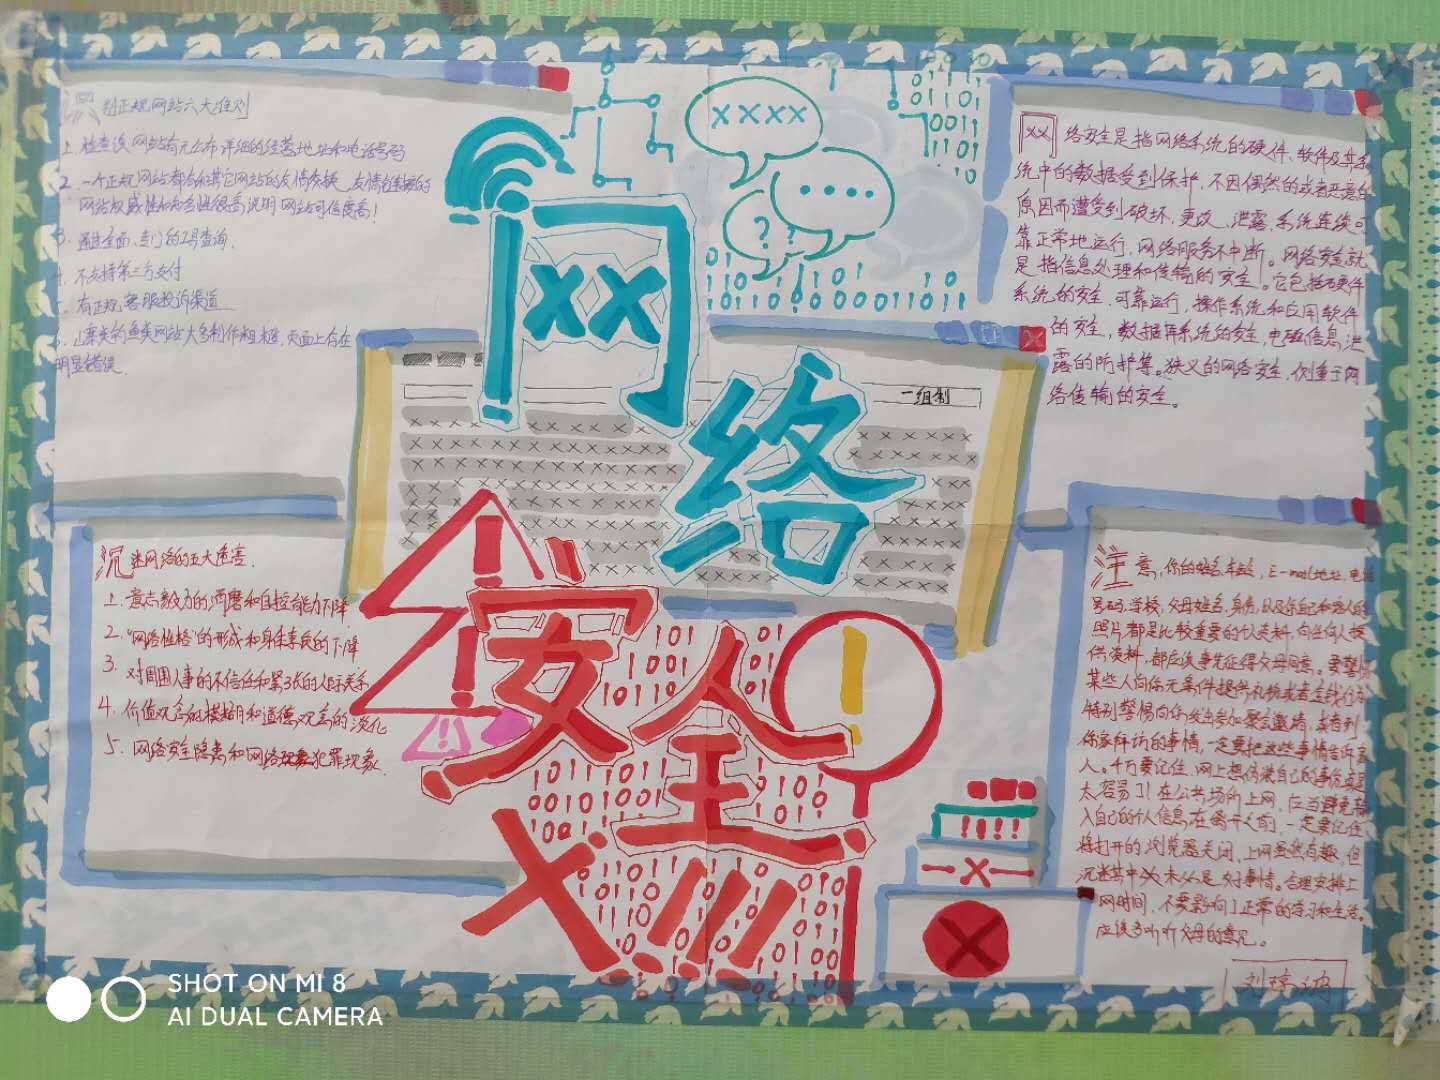 识别正规网站六大准则
1. 检查该网站有无公布详细的经营地址和电话号码
2. 一个正规网站都有和其它网站的友情链接,友情链接的
网站权威性和知名性很高,说明网站可信度高!
3. 通过全面、专门的工具查询.
4. 不支持第三方支付
5. 有正规客服投诉渠道
6. 山寨类钓鱼类网站大多制作粗糙,页面上存在
明显错误.
网络安全
XXXX
一组制
网络安全是指网络系统的硬件、软件及其系
统中的数据受到保护,不因偶然的或者恶意的
原因而遭受到破坏、更改、泄露,系统连续可
靠正常地运行,网络服务不中断。网络安全就
是指信息处理和传输的安全。它包括硬件
系统的安全、可靠运行,操作系统和应用软件
的安全,数据库系统的安全,电磁信息泄
露的防护等。狭义的网络安全,侧重于网
络传输的安全。
沉迷网络的五大危害.
1. 意志毅力的消磨和自控能力下降
2. "网络性格"的形成和身体素质的下降
3. 对周围人事的不信任和紧张的人际关系
4. 价值观念的模糊和道德观念的淡化
5. 网络安全隐患和网络犯罪现象.
注意,你的姓名、年龄,E-mail地址,电话
号码,学校,父母姓名,身份,以及你自己和家人的
照片都是比较重要的个人资料,向任何人提
供资料,都应该事先征得父母同意。要警惕
某些人向你无条件提供礼物或者金钱
特别警惕向你发出参加聚会邀请,或者到
你家拜访的事情,一定要把这些事情告诉家
人。千万要记住,网上想伪装自己的事实是
太容易了!在公共场所上网,应当避免输
入自己的个人信息,在离开之前,一定要记住
将打开的浏览器关闭,上网虽然有趣,但
沉迷其中从来不是好事情。合理安排上
网时间,不要影响了正常的学习和生活。
应该多听听父母的意见。
SHOT ON MI 8
AI DUAL CAMERA